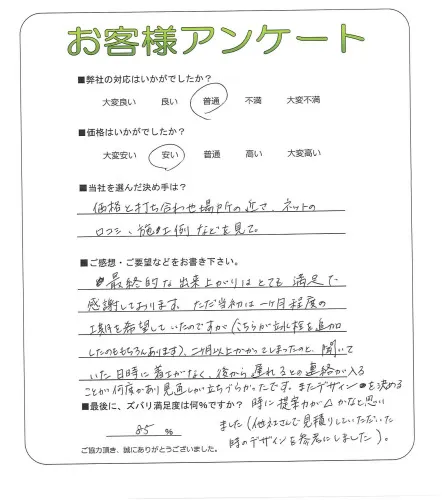 お客様アンケート
■弊社の対応はいかがでしたか？
大変良い 良い 普通 不満 大変不満
■価格はいかがでしたか？
大変安い 安い 普通 高い 大変高い
■当社を選んだ決め手は？
価格と打ち合わせ場所の近さ、ネットの
口コミ、施工例などを見て。
■ご感想・ご要望などをお書き下さい。
最終的な出来上がりはとても満足で
感謝しております。ただ当初は一ヶ月程度の
工期を希望していたのですが（こちらが立水栓を追加
したのももちろんあります）、二ヶ月以上かかってしまったのと、聞いて
いた日時に着工がなく、後から遅れるとの連絡が入る
ことが何度かあり見通しが立ちづらかったです。またデザインを決める
■最後に、ズバリ満足度は何％ですか？
時に提案力が△かなと思い
85 ％
ました（他社さんで見積りしていただいた
時のデザインを参考にしました）。
ご協力頂き、誠にありがとうございました。